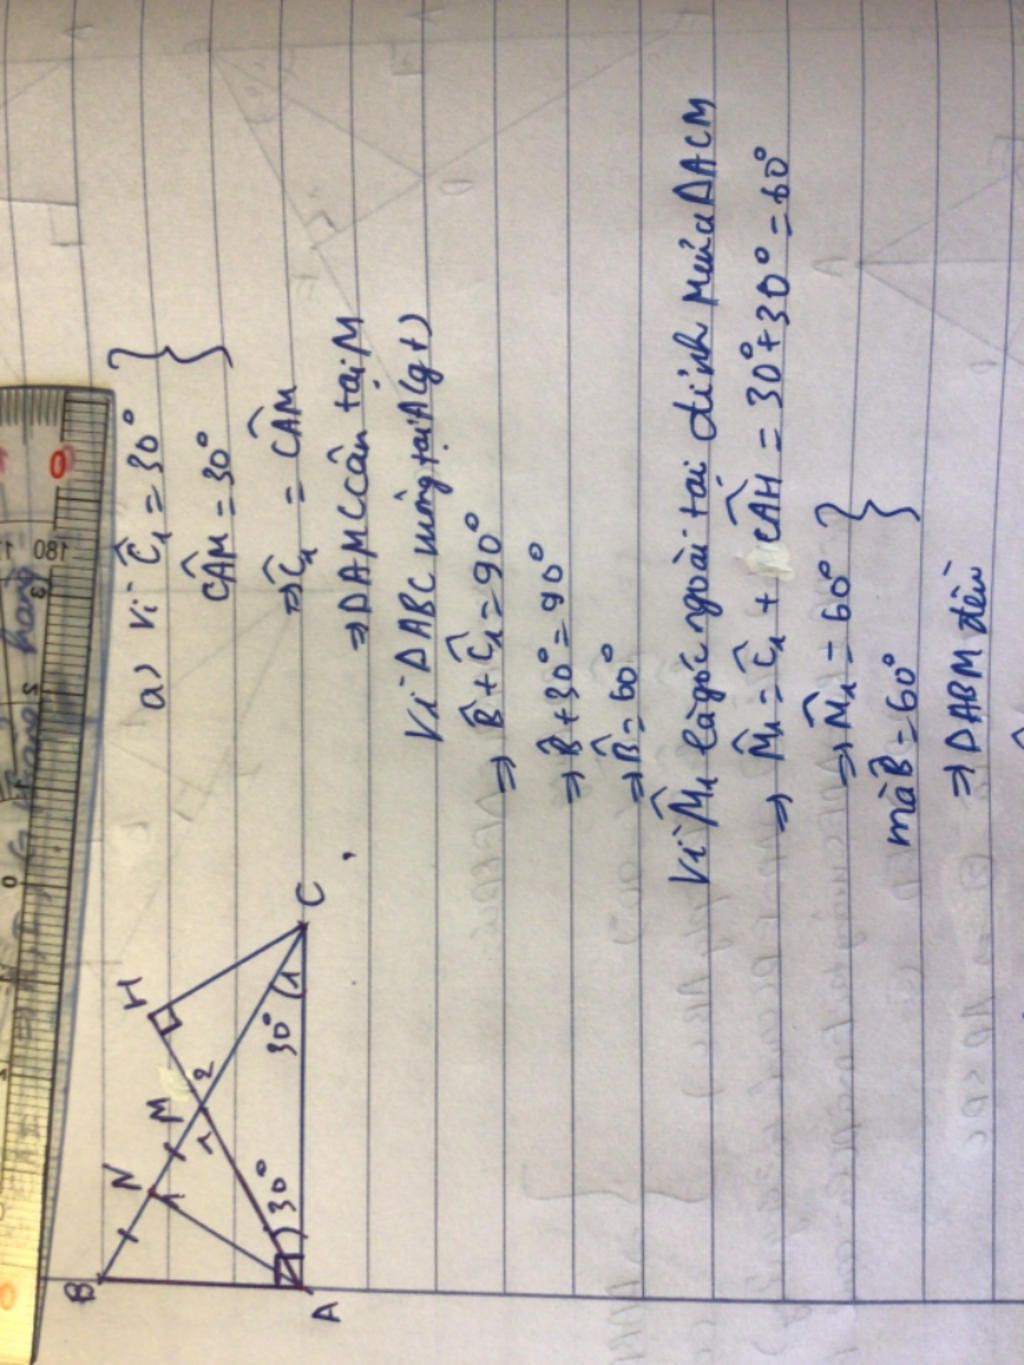 B
N
M
H
1
1
2
A
30°
30°
1
C
a) Vì Ĉ₁ = 30° }
CÂM = 30°
⇒ Ĉ₁ = CÂM
⇒ ΔAMC cân tại M
Vì ΔABC vuông tại A (gt)
⇒ B̂ + Ĉ₁ = 90°
⇒ B̂ + 30° = 90°
⇒ B̂ = 60°
Vì M̂₁ là góc ngoài tại đỉnh M của ΔACM
⇒ M̂₁ = Ĉ₁ + CÂH = 30° + 30° = 60°
⇒ M̂₁ = 60° }
mà B̂ = 60°
⇒ ΔABM đều
0
180
0
0